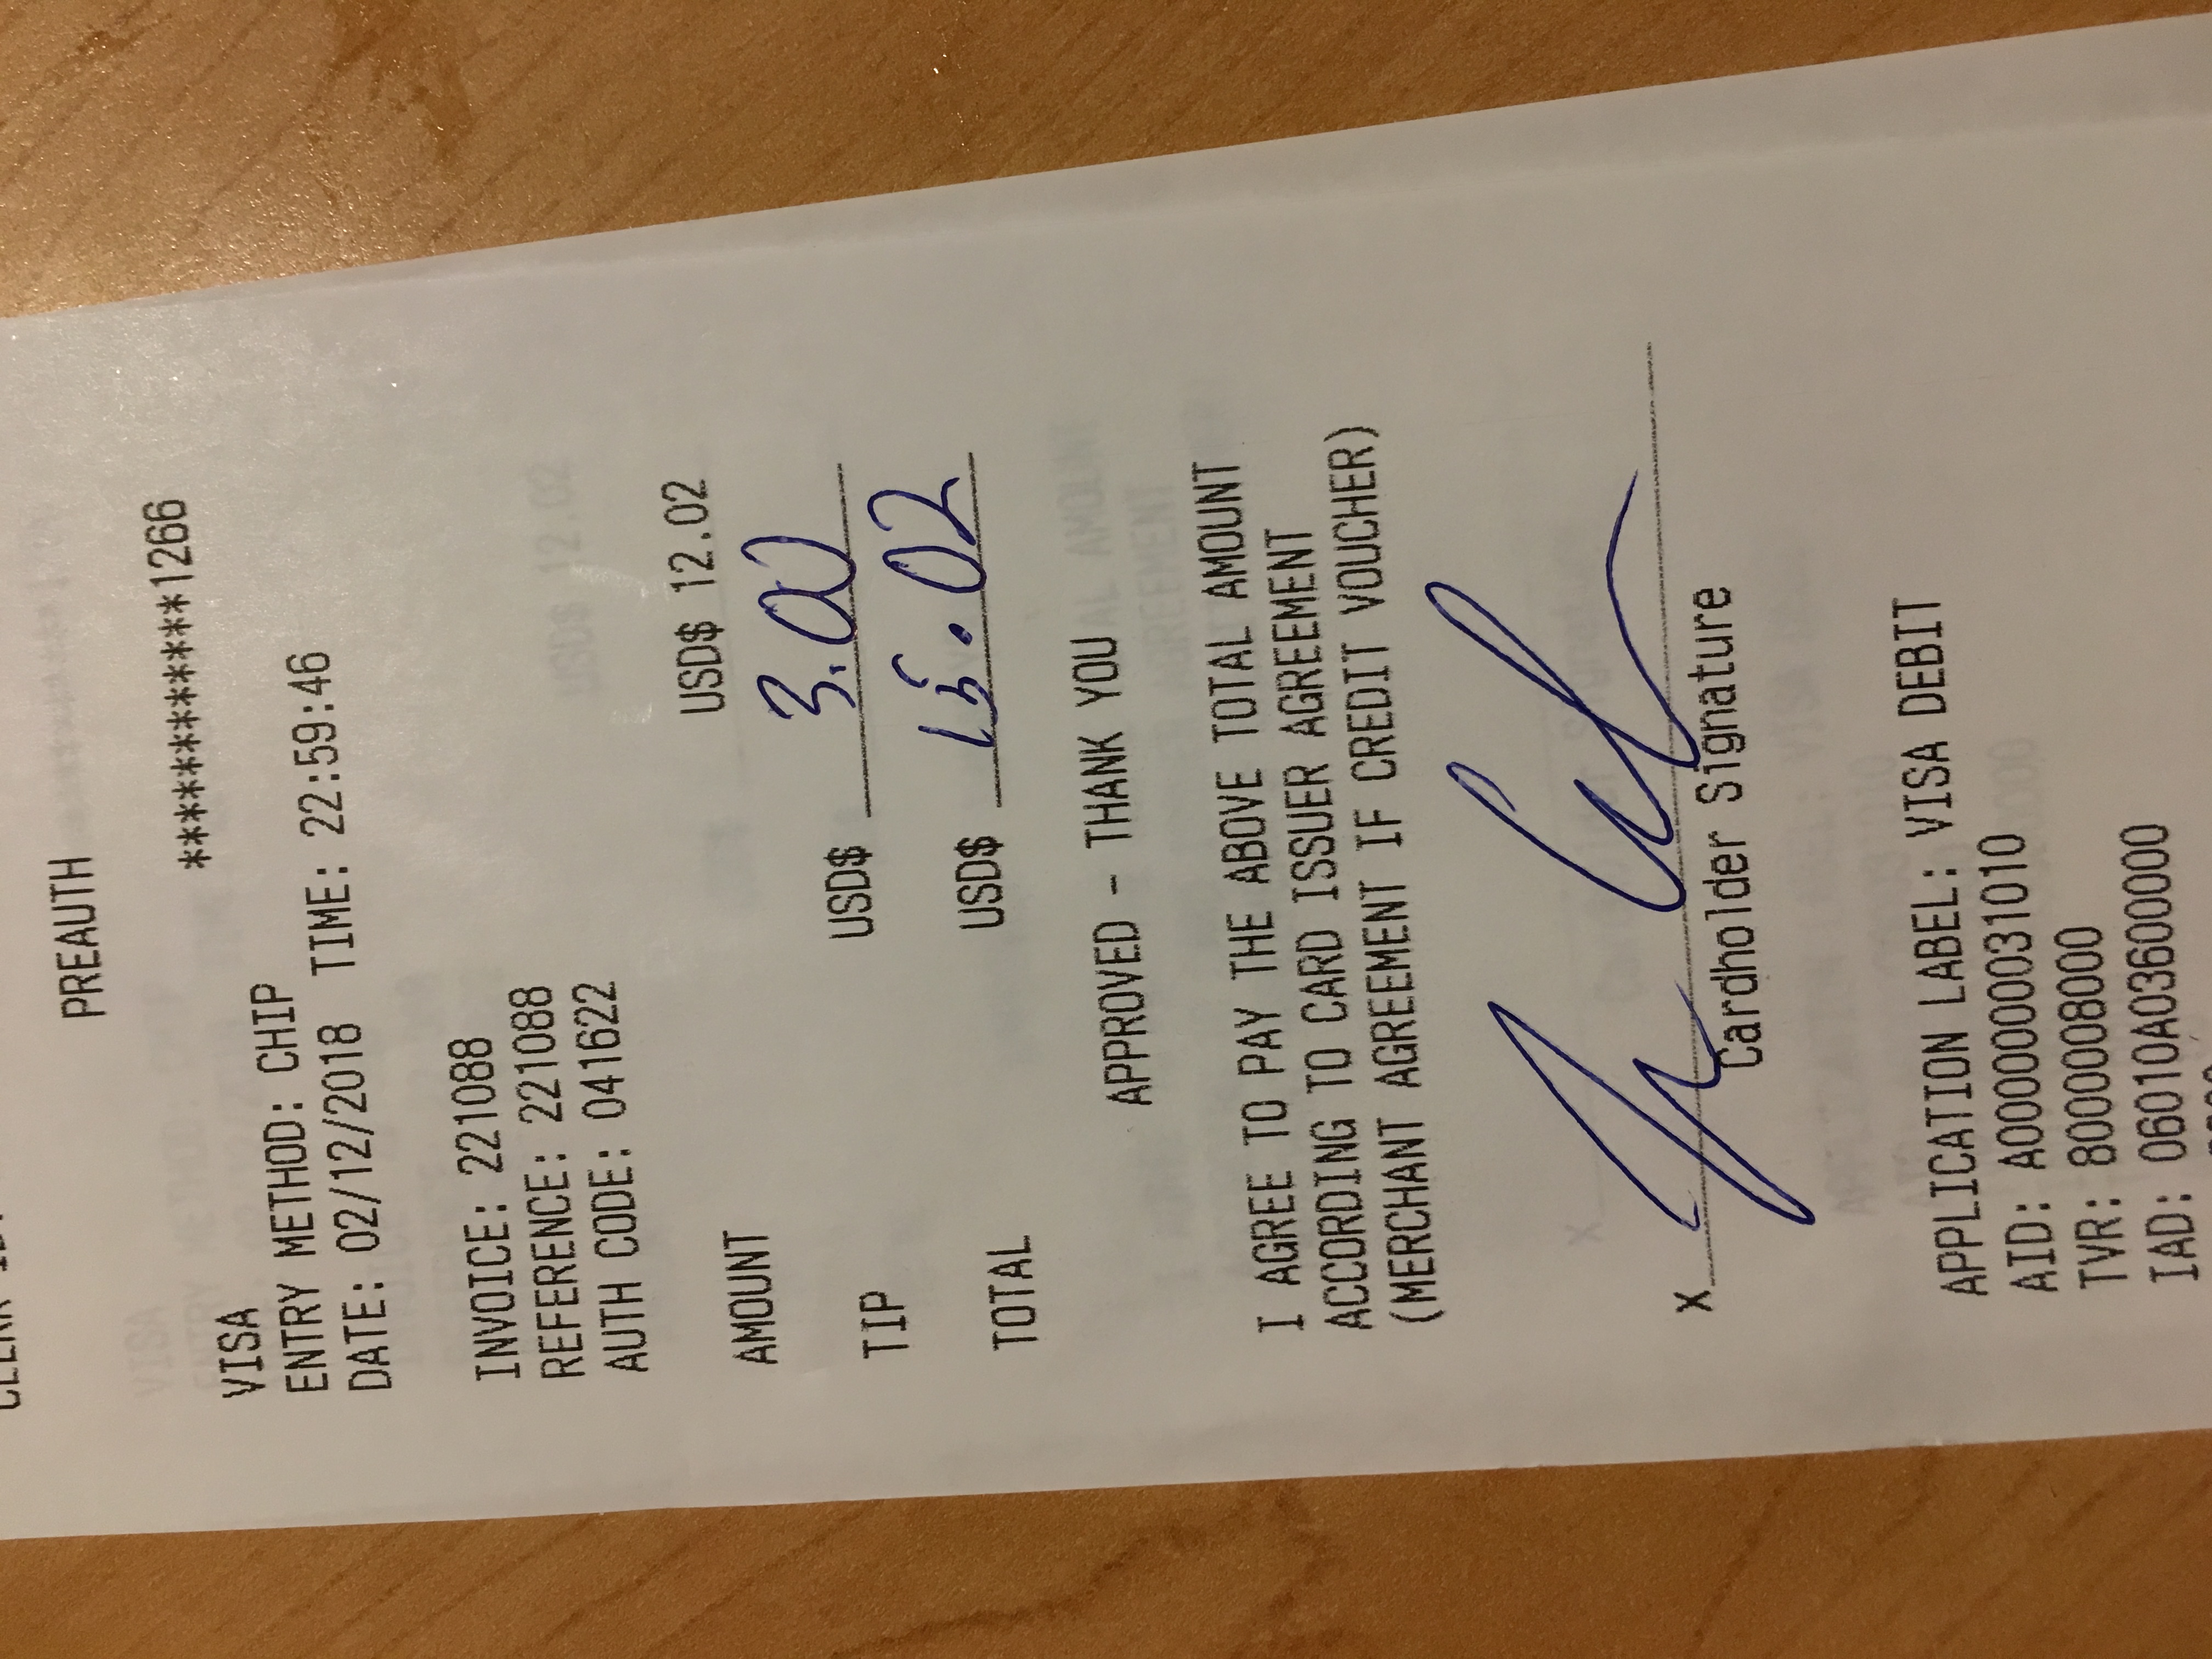 CLERK ID:
PREAUTH
************1266
VISA
ENTRY METHOD: CHIP
DATE: 02/12/2018 TIME: 22:59:46
INVOICE: 221088
REFERENCE: 221088
AUTH CODE: 041622
AMOUNT USD$ 12.02
TIP USD$ 3.00
TOTAL USD$ 15.02
APPROVED - THANK YOU
I AGREE TO PAY THE ABOVE TOTAL AMOUNT
ACCORDING TO CARD ISSUER AGREEMENT
(MERCHANT AGREEMENT IF CREDIT VOUCHER)
X
Cardholder Signature
APPLICATION LABEL: VISA DEBIT
AID: A0000000031010
TVR: 8000008000
IAD: 06010A03600000